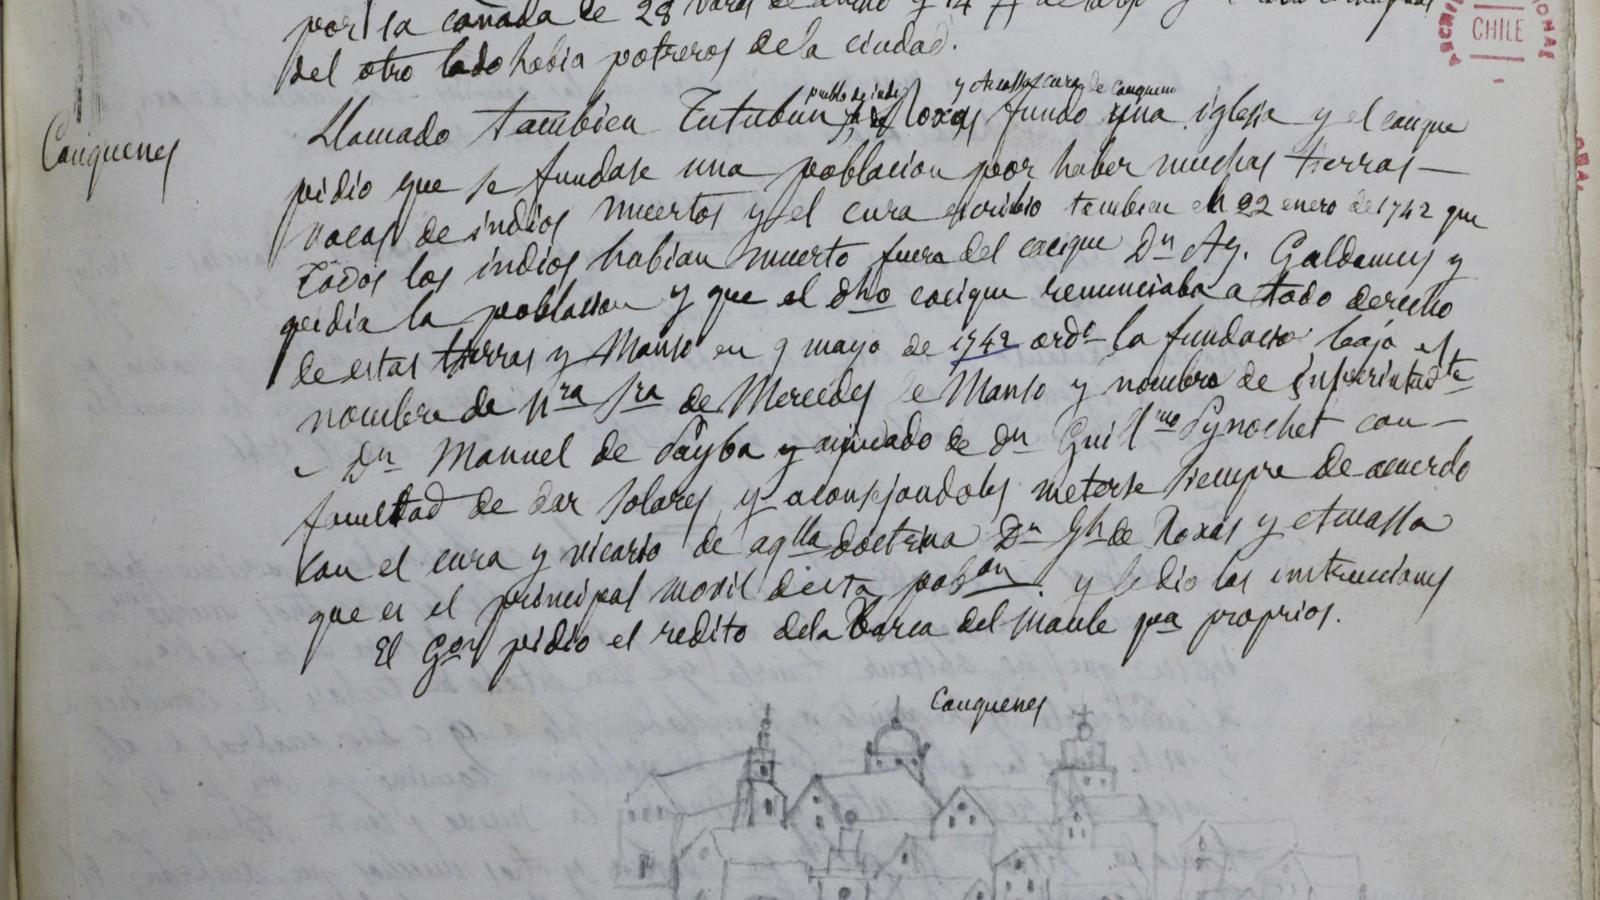 por la cañada de 28 varas de ancho y 14
del otro lado habia potreros de la ciudad.
ARCHIVO NACIONAL
CHILE
pueblo de indios y Amassa cura de Cauquenes
Cauquenes
Llamado tambien Tutubun Roxas fundo una iglesia y el cacique
pidio que se fundase una poblacion por haber muchas tierras
vacas de indios muertos y el cura escribio tambien el 22 enero de 1742 que
todos los indios habian muerto fuera del cacique Dn Ag. Galdames y
pedia la poblacion y que el dho cacique renunciaba a todo derecho
de estas tierras y Manso en 9 mayo de 1742 ordo la fundacio bajo el
nombre de Nra Sra de Mercedes de Manso y nombro de superintdte
Dn Manuel de Sayba y ayudado de dn Guillmo Pynochet con
facultad de dar solares y aconsejandoles meterse siempre de acuerdo
con el cura y vicario de aqlla doctrina Dn de Roxas y Amassa
que es el principal movil desta pobon. y le dio las instrucciones
El Gor pidio el redito de la barca del Maule pa proprios.
Cauquenes